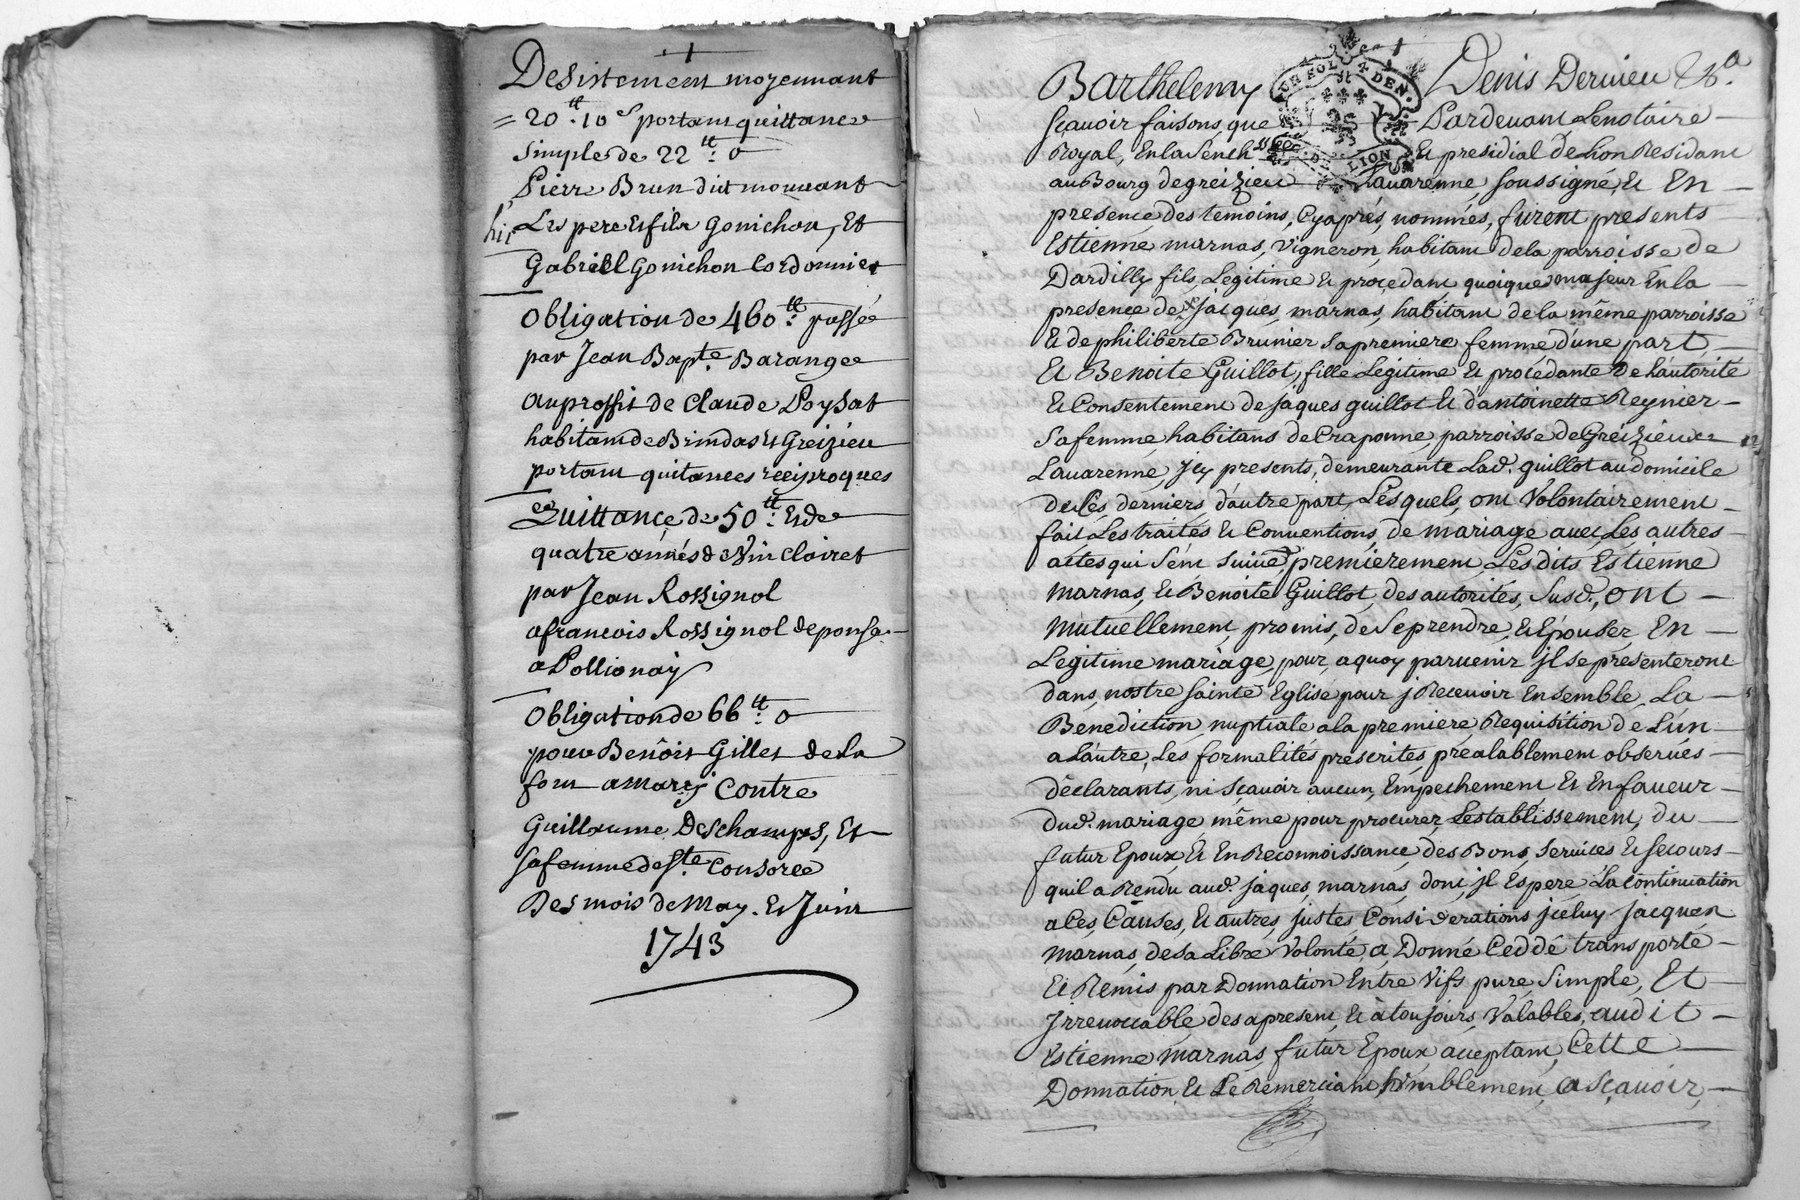 Desistement moyennant
= 20 tt. 10 s portant quittance
simple de 22 tt: o
Pierre Brun dit mouuant
Les pere et fils Gonichon, Et
Gabriel Gonichon Cordonnier
Obligation de 460 tt: passée
par Jean Bapte. Barange
au proffit de Claude Poysat
habitant de Brindas et Greizieu
portant quitances reciproques
Quittance de 50 tt: et de
quatre années de Vin clairet
par Jean Rossignol
a francois Rossignol de
a Pollionay
Obligation de 66 tt: o
pour Benôit Gillet de la
font a Marcy Contre
Guillaume Deschamps, Et
sa femme de Ste. Consorce
Des mois de May. Et Juin
1743
Barthelemy Denis Dervieu
sçauoir faisons, que Pardeuant Le notaire
Royal, En la Sench.ssee Et presidial de Lion Residant
au Bourg de greizieu Lauarenne, soussigné, et En
presence, des temoins, Cy aprés, nommés, furent presents
Estienne marnas, Vigneron habitant de la parroisse de
Dardilly fils, Legitime et procedant quoique majeur En la
presence de Jacques, marnas, habitant de la même parroisse
Et de philiberte Brunier sa premiere femme d'une part,
Et Benoite Guillot, fille Légitime et procédante de L'autorité
et Consentement de Jaques guillot et d'antoinette Reynier
Sa femme, habitans de Craponne, parroisse de Greizieu
Lauarenne, jcy presents, demeurante Lad. guillot au domicile
de Ces, derniers, d'autre part, Lesquels, ont Volontairement
fait, Les traités et Conuentions, de mariage auec Les autres
actes qui S'ent suiue, premierement, Lesdits Estienne
Marnas, et Benoite Guillot, des autorités, Susd., ont
Mutuellement, promis, de Se prendre, et Epouser, En
Legitime mariage, pour, a quoy paruenir jl se presenteront
dans, nostre sainte Eglise pour j Receuoir Ensemble, La
Benediction, nuptiale, a la premiere, Requisition de L'un
a L'autre, Les formalités, prescrites, prealablement obserués
declarants, ni sçauoir aucun, Empechement Et En faueur
dud. mariage, même pour procurer, L'establissement, du
futur Epoux, et En Reconnoissance, des Bons, Seruices et secours
quil a Rendu aud. jaques, marnas, dont, jl Espere La continuation
a Ces, Causes, et autres, justes, Considerations jceluy Jacques
Marnas, de sa Libre Volonté, a Donné Ceddé transporté
Et Remis par Donnation Entre Vifs pure, Simple, Et
Irreuocable, des apresent, et à toujours, Valables, audit
Estienne marnas, futur Epoux acceptant, Cette
Donnation, et Le Remerciant humblement, a sçavoir,